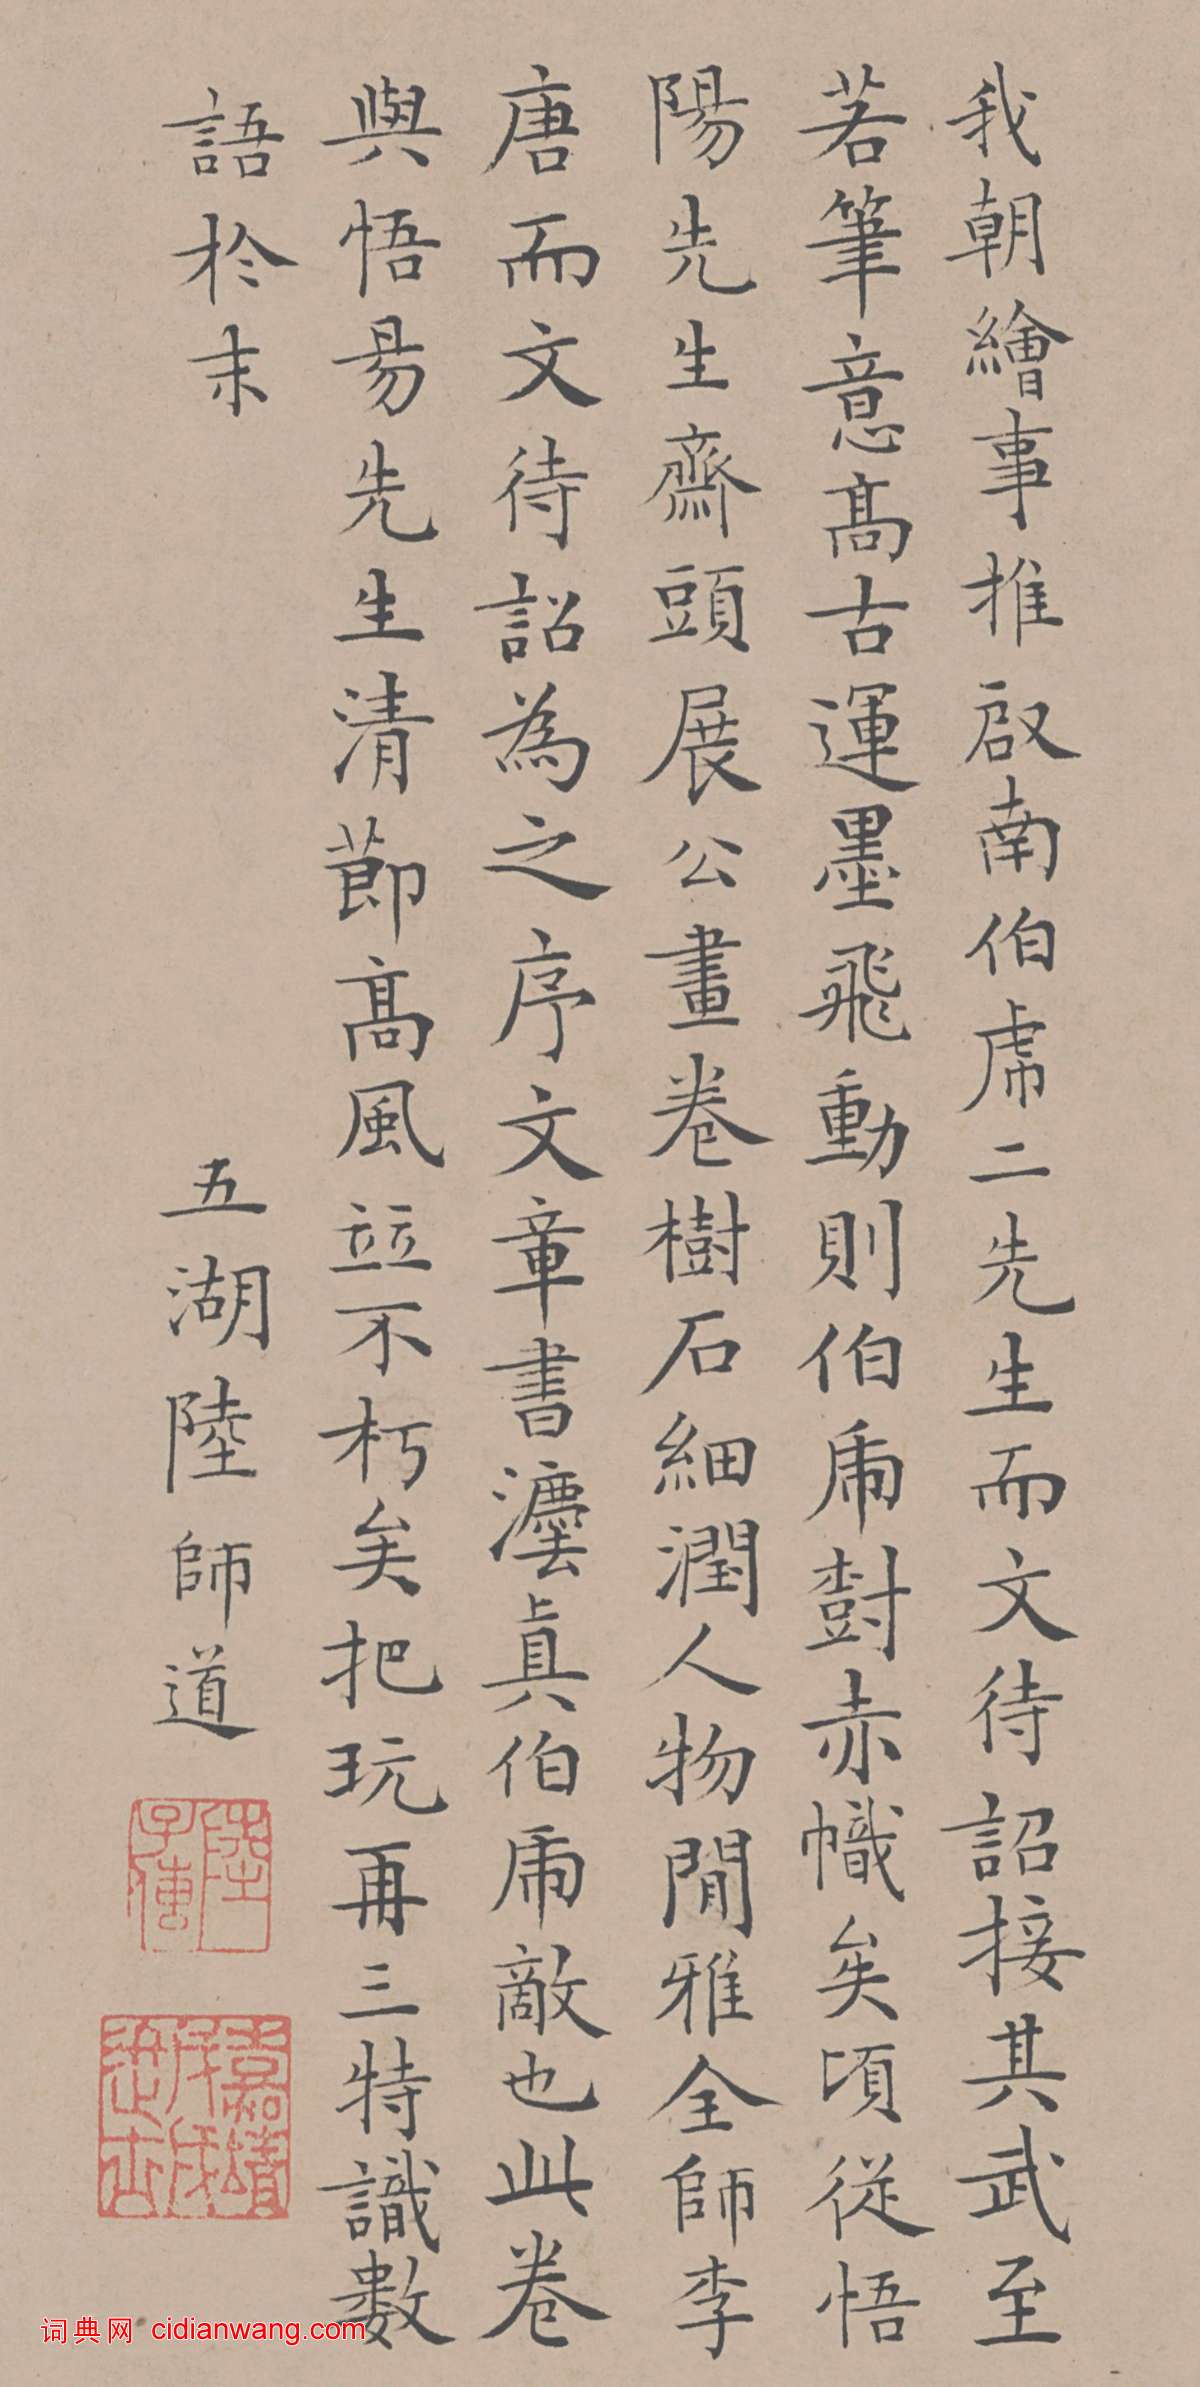 我朝繪事推啟南伯虎二先生而文待詔接其武至
若筆意高古運墨飛動則伯虎樹赤幟矣頃從悟
陽先生齋頭展公畫卷樹石細潤人物閒雅全師李
唐而文待詔為之序文章書灋真伯虎敵也此卷
與悟昜先生清節高風竝不朽矣把玩再三特識數
語於末
五湖陸師道
陸子傳
嘉靖戊戌進士
词典网 cidianwang.com